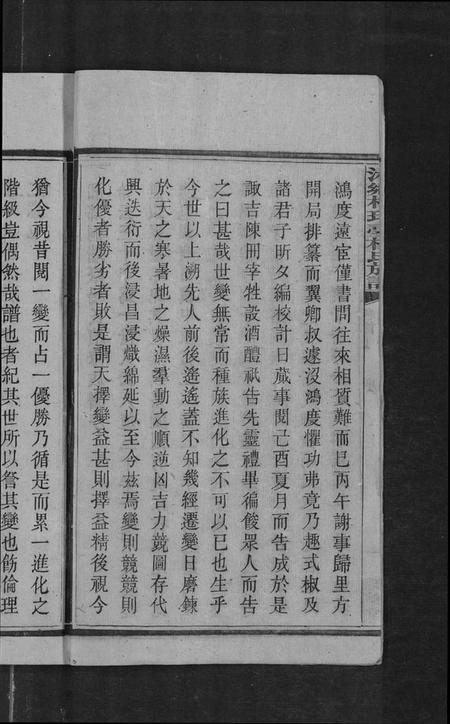 鴻度遠宦僅書問往來相質難而已丙午謝事歸里方
開局排纂而翼卿叔遽沒鴻度懼功弗竟乃趣式椒及
諸君子昕夕編校計日蕆事閱己酉夏月而告成於是
諏吉陳冊宰牲設酒醴祇告先靈禮畢徧餕眾人而告
之曰甚哉世變無常而種族進化之不可以已也生乎
今世以上溯先人前後遙遙蓋不知幾經遷變日磨鍊
於天之寒暑地之燥濕羣動之順逆凶吉力競圖存代
興迭衍而後浸昌浸熾綿延以至今茲焉變則競競則
化優者勝劣者敗是謂天擇變益甚則擇益精後視今
猶今視昔閱一變而占一優勝乃循是而累一進化之
階級豈偶然哉譜也者紀其世所以咎其變也飭倫理